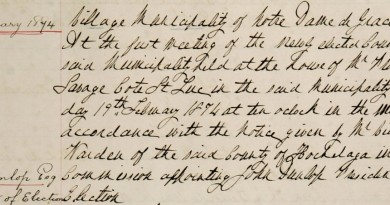 uary 1874
Village Municipality of Notre Dame de Grac
At the first meeting of the newly elected Coun
said Municipality held at the House of Mr
Savage Cote St Luc in the said Municipality
day 19th February 1874 at ten oclock in the
accordance with the Notice given by Mr
Warden of the said County of Hochelaga in
Commission appointing John Dunlop
unlop Esq
of Election
Election